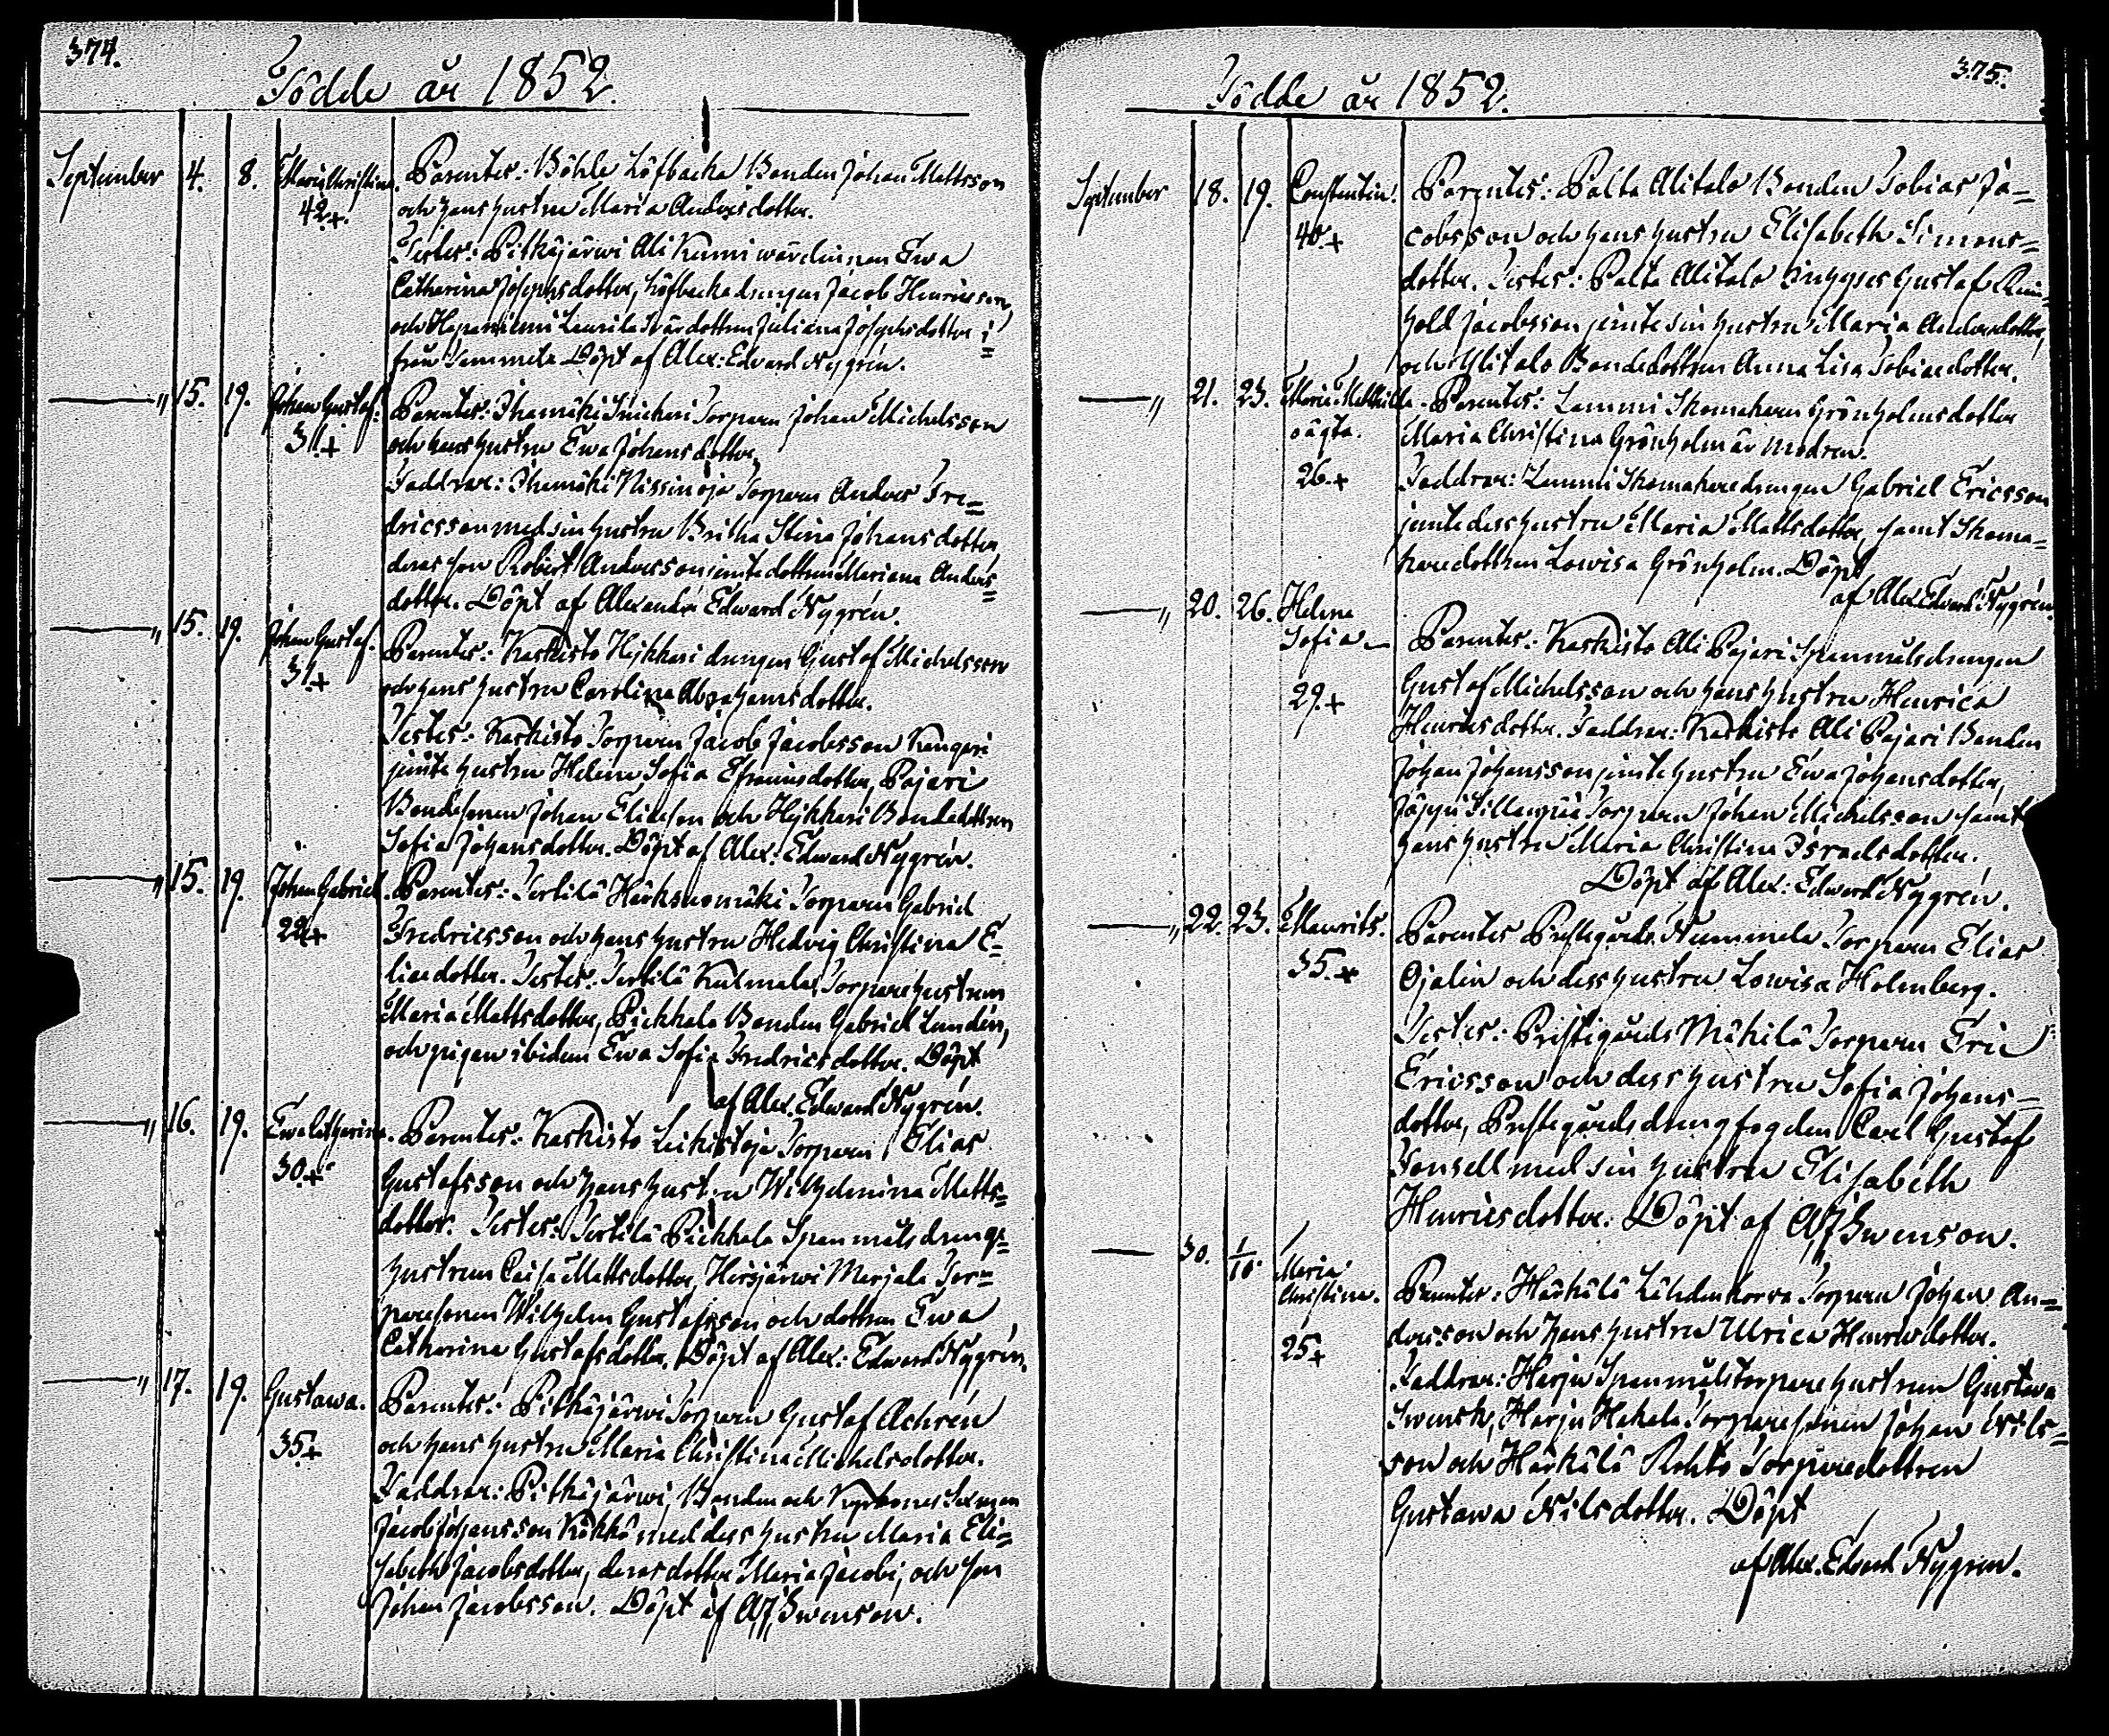 374.
Födde år 1852.
September 4. 8. Maria Christina. Parentes: Böhle Löfbacka Bonden Johan Mattsson
42.+. och hans hustru Maria Andersdotter.
Testes: Pitkäjärwi Ali Kunni wärdinnan Ewa
Catharina Josephsdotter, Löfbacka drängen Jacob Henricsson,
och Haponiemi Laurila Juliana Josephsdotter i=
från Sammels Döpt af Alex: Edward Nygrén.
——" 15. 19. Johan Gustaf. Parentes: Ihamäki Torparen Johan Michelsson
31.+ och hans hustru Ewa Johansdotter.
Faddrar: Ihamäki Nissinoja Torparen Anders Fre=
dricsson med sin hustru Britha Stina Johansdotter,
deras son Robert Andersson jemte dottren Mariana Anders=
dotter. Döpt af Alexander Edward Nygrén.
——" 15. 19. Johan Gustaf. Parentes: Kaskisto Hykkeri drängen Gustaf Michelsson
31.+ och hans hustru Carolina Abrahamsdotter.
Testes: Kaskisto Torparen Jacob Jacobsson Kangari
jemte hustru Helena Sofia Efraimsdotter, Pajari
Bondesonen Johan Eliasson och Hykkeri Bondedottren
Sofia Johansdotter. Döpt af Alex: Edward Nygrén.
——" 15. 19. Johan Gabriel. Parentes: Tertilä Torparen Gabriel
22.+ Fredricsson och hans hustru Hedvig Christina E=
liaedotter. Testes: Tertilä Kulmala Torparehustrun
Maria Mattsdotter, Pickkala Bonden Gabriel Lundén,
och pigan ibidem Ewa Sofia Fredricsdotter. Döpt
af Alex. Edward Nygrén.
——" 16. 19. Ewa Catharina. Parentes: Kaskisto Leikistoja Torparen Elias
30.+ Gustafsson och hans hustru Wilhelmina Matts=
dotter. Testes: Tertilä Pickkala Spanmålsdrängs=
hustrun Caisa Mattsdotter, Hirsjärwi Marjala Tor=
paresonen Wilhelm Gustafsson och dottren Ewa
Catharina Gustafsdotter. Döpt af Alex: Edward Nygrén.
——" 17. 19. Gustawa. Parentes: Pitkäjärwi Torparen Gustaf Achrén
35.+ och hans hustru Maria Christina Michelsdotter.
Faddrar: Pitkäjärwi, Bonden och
Jacob Johansson Käkkö med dess hustru Maria Eli=
sabeth Jacobsdotter, deras dotter Maria Jacobi, och son
Johan Jacobsson. Döpt af AJSwenson.
375.
Födde år 1852.
September 18. 19. Constantin. Parentes: Palta Alitalo Bonden Tobias Ja=
40.+ cobsson och hans hustru Elisabeth Simons=
dotter. Testes: Palta Alitalo Gustaf Rein=
hold Jacobsson jemte sin hustru Maria Andersdotter,
och Ylitalo Bondedottren Anna Lisa Tobiaedotter.
——" 21. 23. Maria Mathilda. Parentes: Lammi Skomakaren Grönholms dotter
oägta. Maria Christina Grönholm är modren.
26.+ Faddrar: Lammi Skomakaredrängen Gabriel Ericsson
jemte dess hustru Maria Mattsdotter, samt Skoma=
karedottren Lowisa Grönholm. Döpt
af Alex. Edward Nygrén.
——" 20. 26. Helena
Sofia — Parentes: Kaskisto Ali Pajari Spanmålsdrängen
29.+ Gustaf Michelsson och hans hustru Henrica
Henricsdotter. Faddrar: Kaskisto Ali Pajari Bonden
Johan Johansson jemte hustru Ewa Johansdotter,
Torparen Johan Michelsson samt
hans hustru Maria Christina Israelsdotter.
Döpt af Alex: Edward Nygrén.
——" 22. 23. Maurits. Parentes Prestegårds Nummela Torparen Elias
35.+ Ojalin och dess hustru Lowisa Holmberg.
Testes: Prestegårds Mäkilä Torparen Eric
Ericsson och dess hustru Sofia Johans=
dotter, Prestegårds drängfogden Carl Gustaf
Fonsell med sin hustru Elisabeth
Henricsdotter. Döpt af AJSwenson.
—— 30. 1/10. Maria
Christina. Parentes: Härkälä Lähdenkorva Torparen Johan An=
25+ dersson och hans hustru Ulrica Henricsdotter.
Faddrar: Harju Spanmålstorparehustrun Gustava
Swensk, Harju Hakala Torparesonen Johan Nils=
son och Härkälä Rohto Torparedottren
Gustawa Nilsdotter. Döpt
af Alex. Edward Nygren.